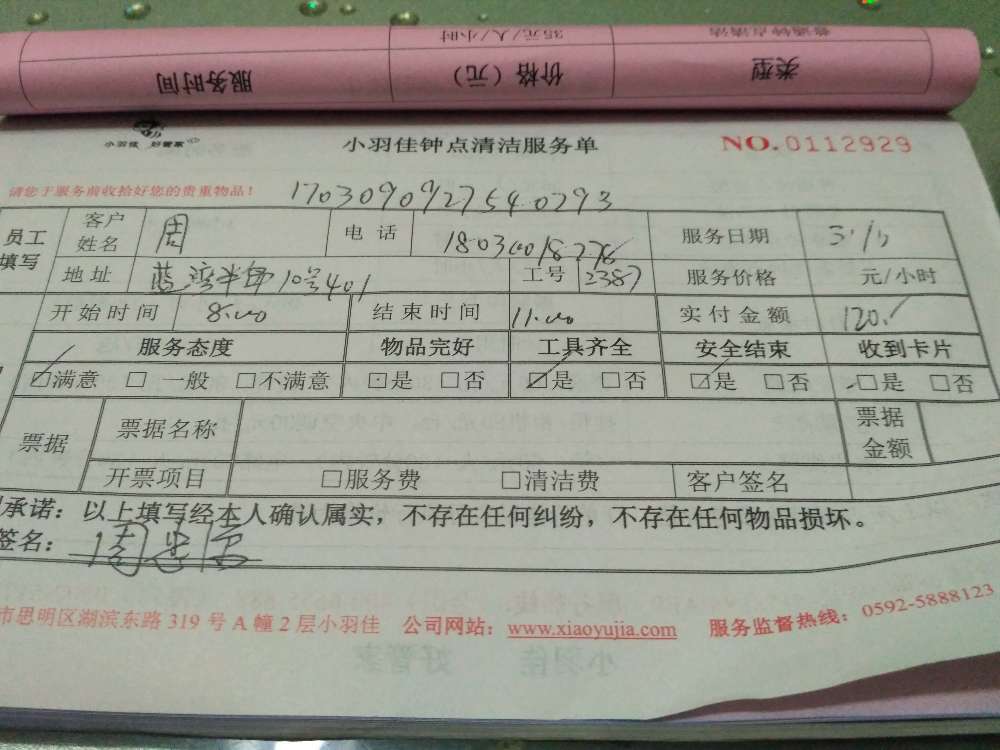 服务时间 价格（元） 类型
35元/人/小时 普通钟点清洁
小羽佳 好管家
小羽佳钟点清洁服务单
NO.0112929
请您于服务前收拾好您的贵重物品！
17030909275540293
员工填写 客户姓名 周 电话 服务日期
地址 10号401 工号 2387 服务价格 元/小时
开始时间 8:00 结束时间 11:00 实付金额 120.
服务态度 物品完好 工具齐全 安全结束 收到卡片
☑满意 □一般 □不满意 ☑是 □否 ☑是 □否 ☑是 □否 ☑是 □否
票据 票据名称 票据金额
开票项目 □服务费 □清洁费 客户签名
承诺：以上填写经本人确认属实，不存在任何纠纷，不存在任何物品损坏。
签名：
市思明区湖滨东路 319 号 A 幢 2 层小羽佳 公司网站：www.xiaoyujia.com 服务监督热线：0592-5888123
小羽佳 好管家